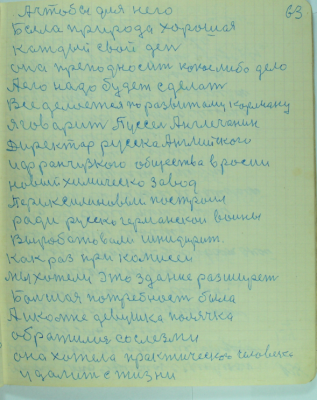 63
А чтобы для него
Белла природа хорошая
Каждый свой ден
она преподносит какое либо дело
Его надо будет сделат
Все делается по развитому карману
Я говарит Пуссел Англечанин
Директар русска Английского
и французкого общества в росии
новый химическо завод
Пироксилиновый построили
ради русско германской войны
Вырабатовали
Как раз при комисси
Мы хотели это здание разширет
Болшая потребност была
А может девушка полячка
обратилас со слезми
она хотела практическова человека
удалит с жизни